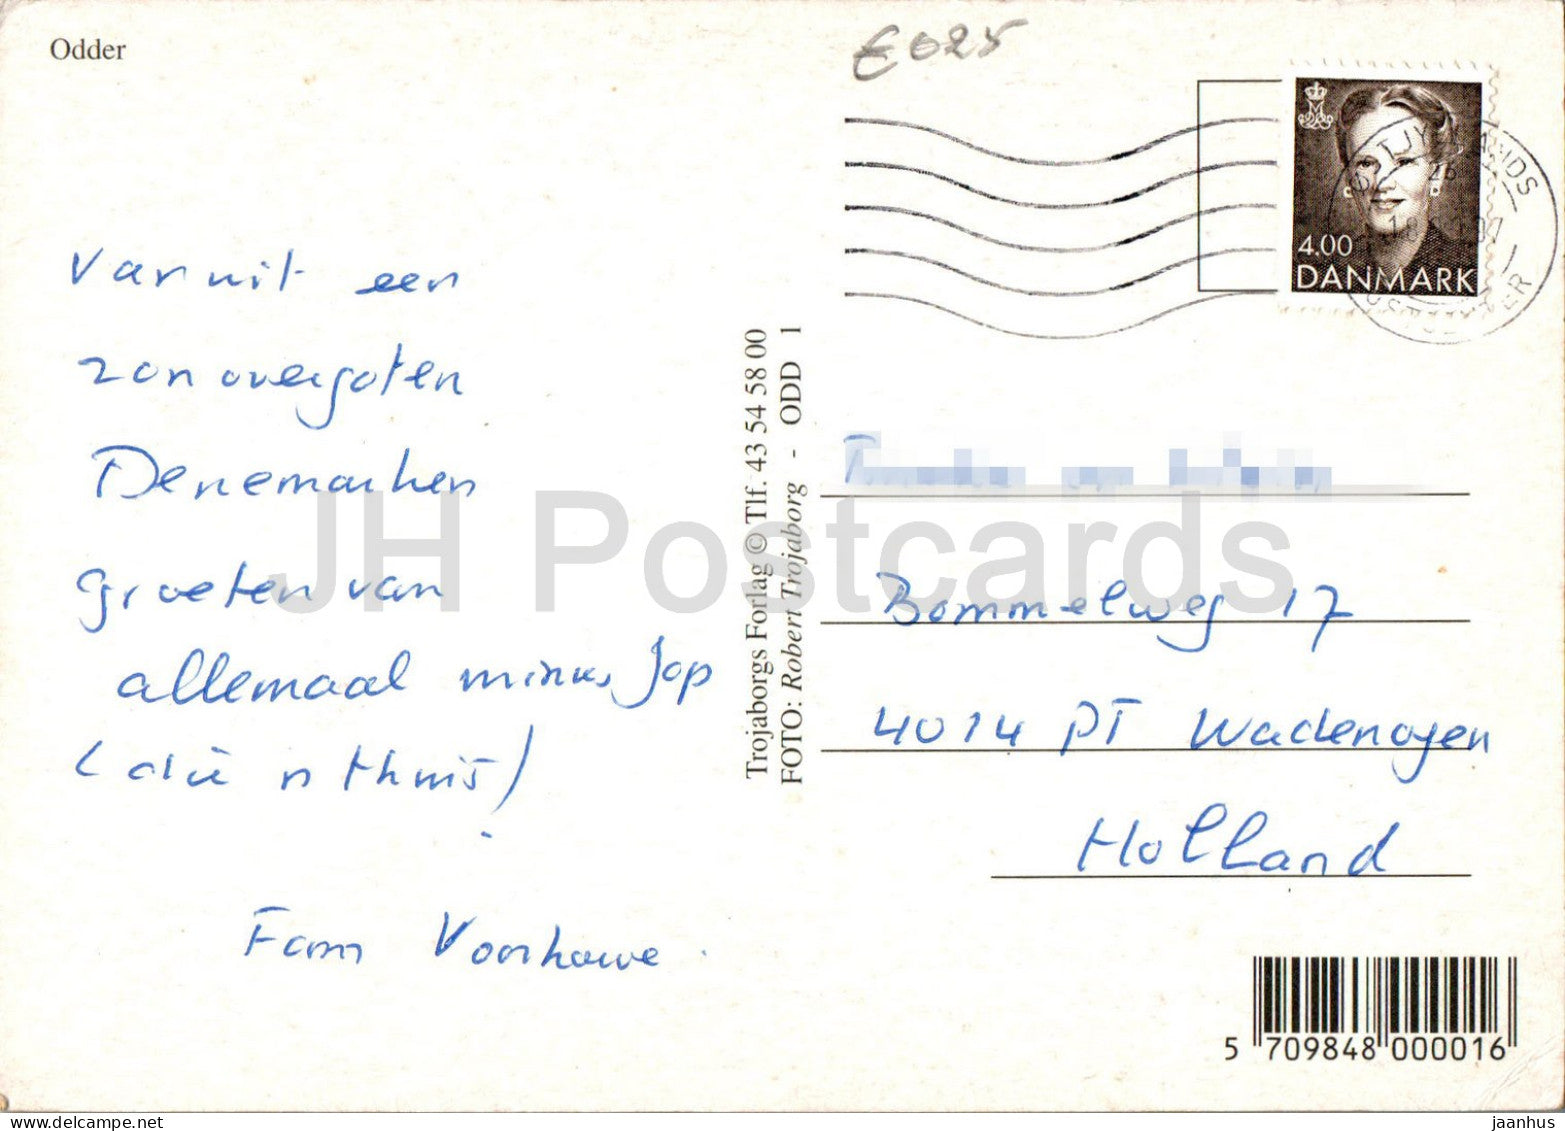 Odder
€025
Vanuit een
zonovergoten
Denemarken
groeten van
allemaal minus Jop
(die is thuis)
Fam Voorhouwe.
Trojaborgs Forlag © Tlf. 43 54 58 00
FOTO: Robert Trojaborg - ODD 1
4.00
DANMARK
ØSTJYLLANDS
POSTCENTER
Bommelweg 17
4014 PT Wadenoyen
Holland
5 709848 000016
JH Postcards
jaanhus @ delcampe.net